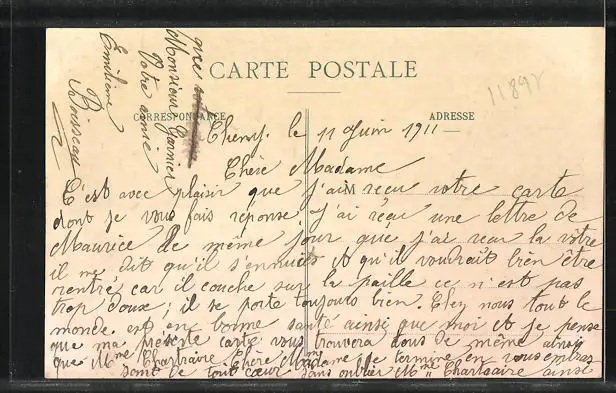 CARTE POSTALE
11892
CORRESPONDANCE
ADRESSE
Cheny. le 11 Juin 1911
Chère Madame
C'est avec plaisir que j'ai reçu votre carte
M
dont je vous fais réponse. J'ai reçu une lettre de
Maurice le même jour que j'ai reçu la vôtre
il me dit qu'il s'ennuie et qu'il voudrait bien être
rentré car il couche sur la paille ce n'est pas
trop doux ; il se porte toujours bien. Chez nous tout le
monde est en bonne santé ainsi que moi et je pense
que ma présente carte vous trouvera tous de même ainsi
que Mme Chartraire Chère Madame je termine en vous embras
sant de tout cœur sans oublier Mme Chartraire ainsi
que
Monsieur Garnier
Votre amie
Emilienne
Poisseau